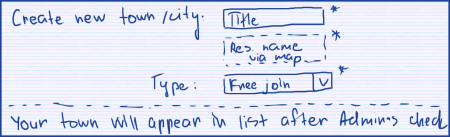 Create new town/city: Title *
Res. name *
via map
Type: Free join v *
Your town will appear in list after Admins check